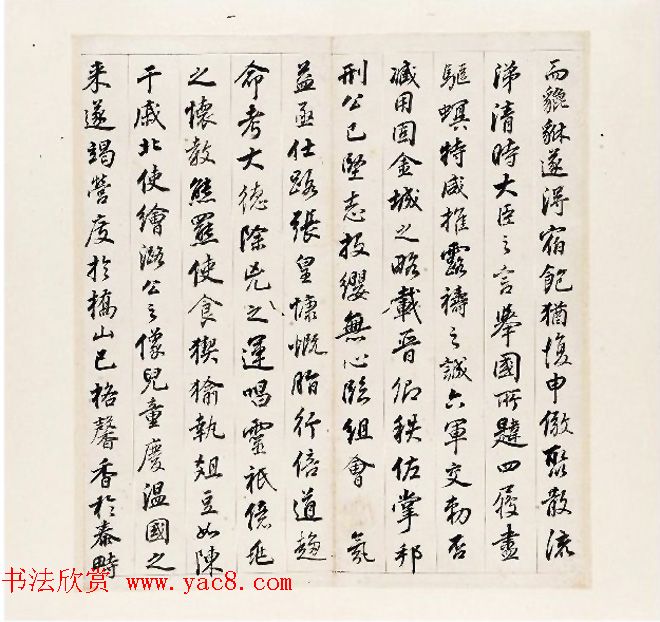 而貔貅遂得宿飽猶復申儆聚散流
涕清時大臣之言舉國所韙四履盡
驅螟特咸推露禱之誠六軍交勅否
臧用固金城之略載晉卿秩佐掌邦
刑公已堅志投纓無心臨組會 氛
益亟仕路張皇慷慨脂行倍道趨
命考大德除兇之運唱靈祇億兆
之懷教熊羆使食猰㺄執俎豆如陳
干戚北使繪潞公之像兒童慶溫國之
来遂竭營度於橋山已格馨香於泰畤
书法欣赏 www.yac8.com